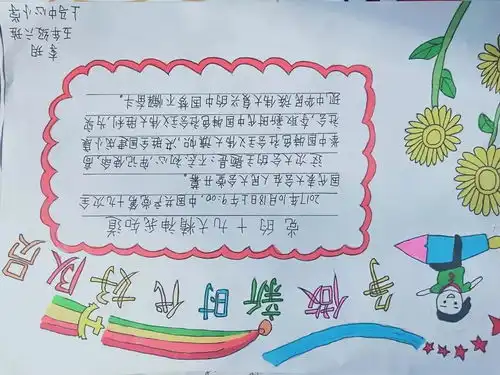 争做新时代好队员
党的十九大精神我知道
2017年10月18日上午9:00,中国共产党第十九次全
国代表大会在人民大会堂开幕。
这次大会的主题是:不忘初心,牢记使命,高
举中国特色社会主义伟大旗帜,决胜全面建成小康
社会,夺取新时代中国特色社会主义伟大胜利,为实
现中华民族伟大复兴的中国梦不懈奋斗。
上马中心小学
五年级六班
李玥